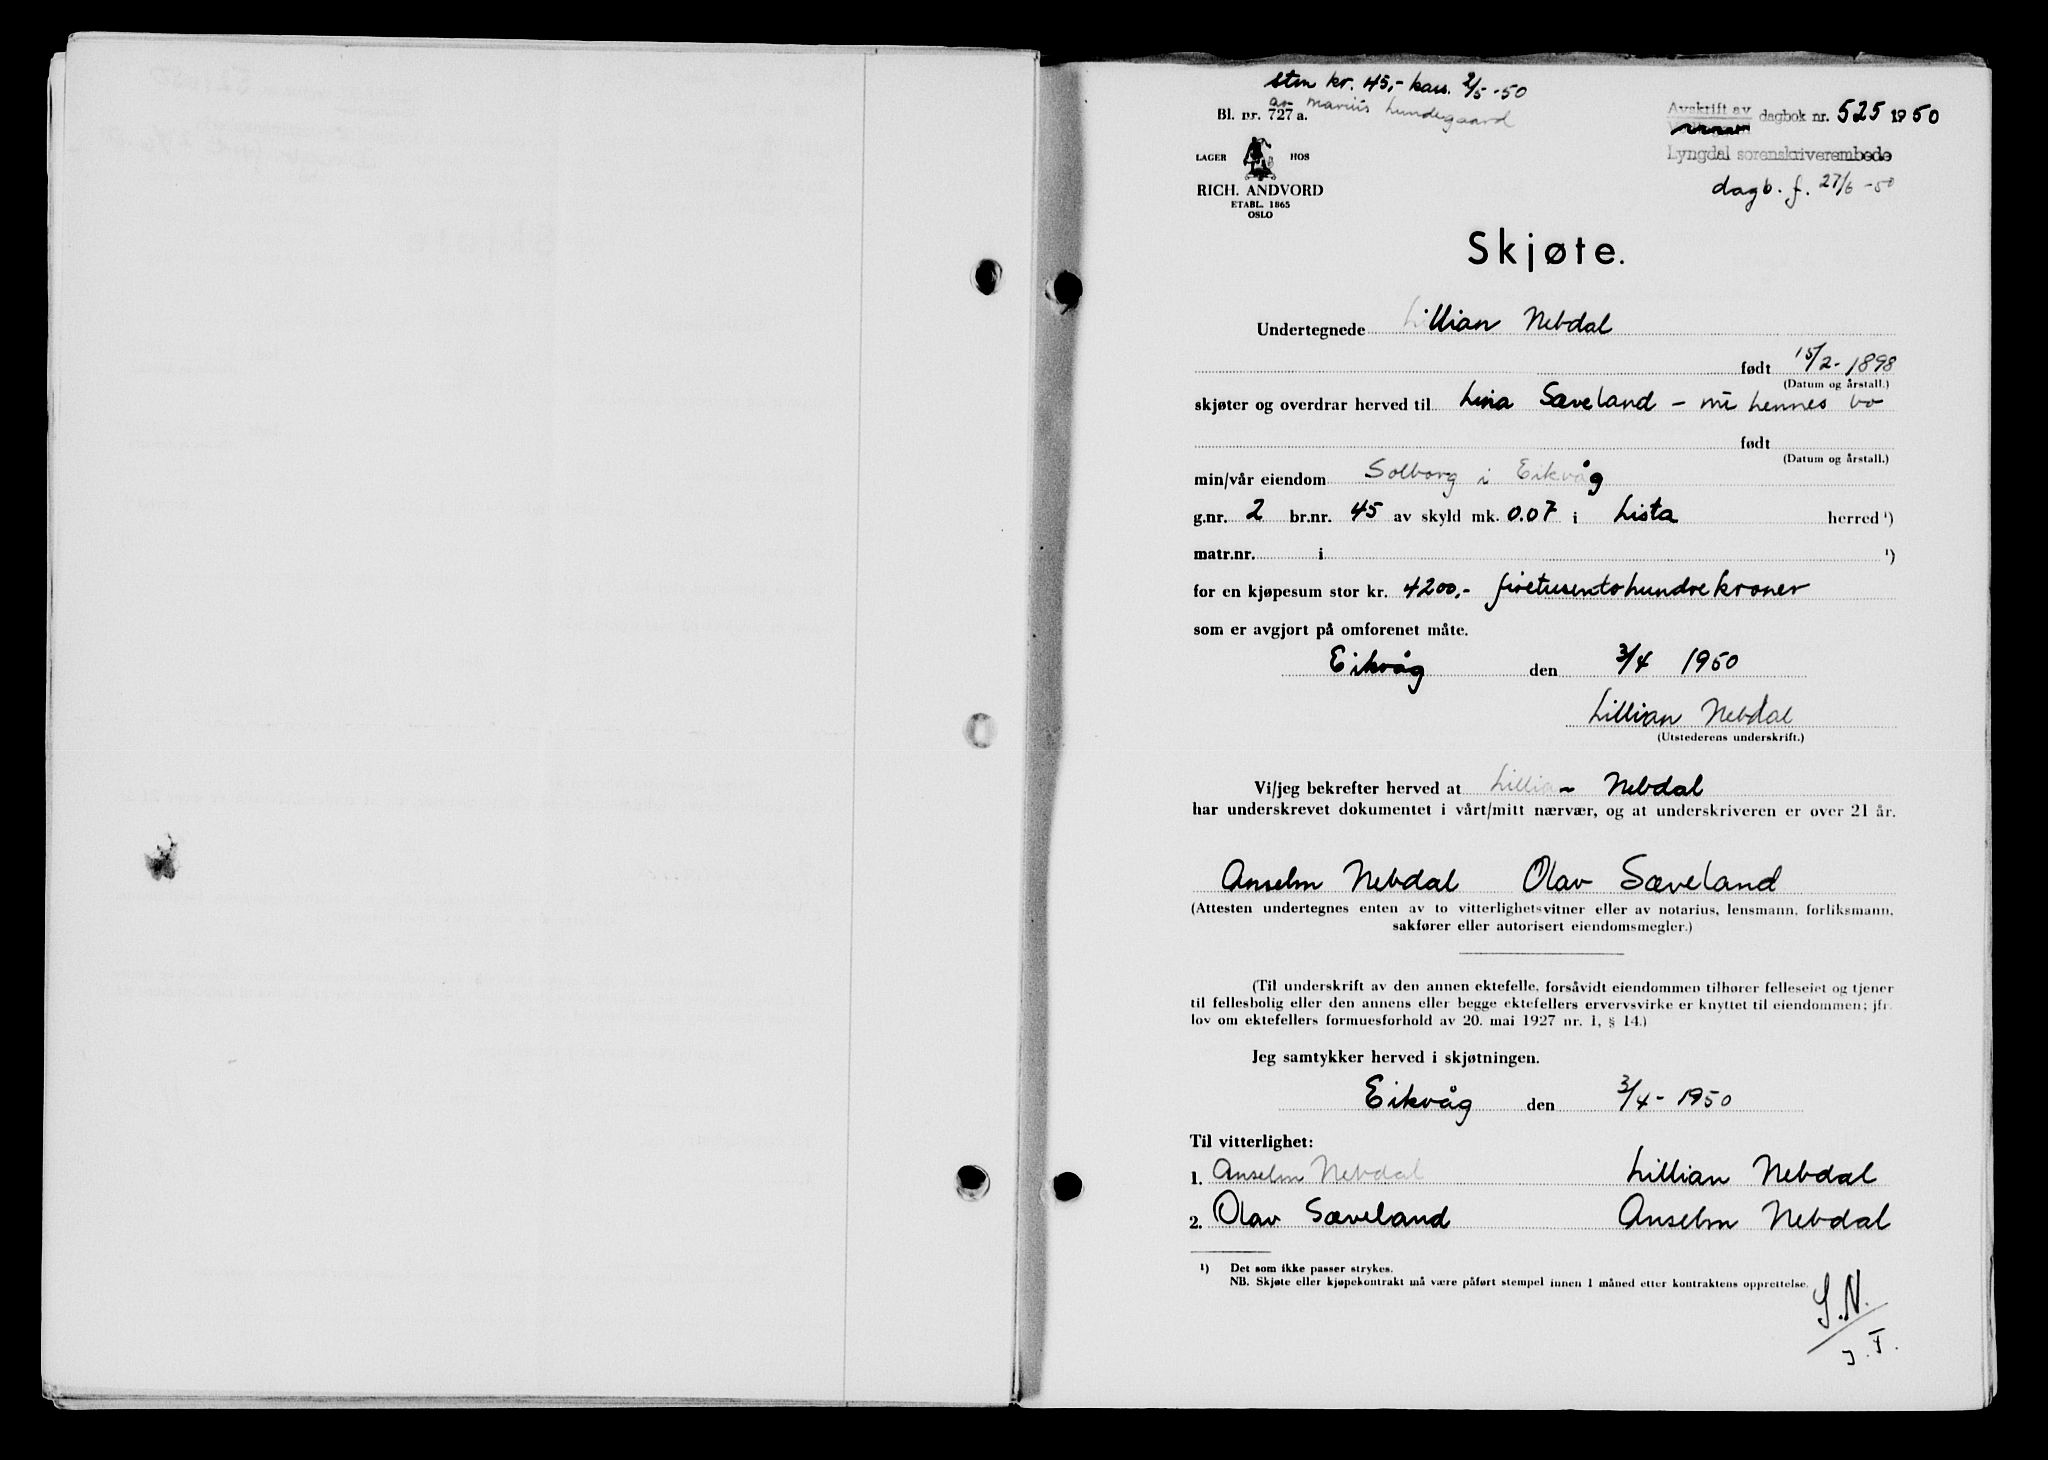 stem kr. 45,- kass. 2/5-50
av Marius Lundegaard
Bl. nr. 727 a.
Avskrift av dagbok nr. 525 1950
Lyngdal sorenskriverembede
dagb. f. 27/6-50
LAGER HOS
RICH. ANDVORD
ETABL. 1865
OSLO
Skjøte.
Undertegnede Lillian Nebdal
født 15/2-1898
(Datum og årstall.)
skjøter og overdrar herved til Lina Sæveland - nu hennes bo
født
(Datum og årstall.)
min/vår eiendom Solborg i Eikvåg
g.nr. 2 br.nr. 45 av skyld mk. 0.07 i Lista herred ¹)
matr.nr. i ¹)
for en kjøpesum stor kr. 4200,- firetusentohundrekroner
som er avgjort på omforenet måte.
Eikvåg den 3/4 1950
Lillian Nebdal
(Utstederens underskrift.)
Vi/jeg bekrefter herved at Lillian Nebdal
har underskrevet dokumentet i vårt/mitt nærvær, og at underskriveren er over 21 år.
Anselm Nebdal Olav Sæveland
(Attesten undertegnes enten av to vitterlighetsvitner eller av notarius, lensmann, forliksmann,
sakfører eller autorisert eiendomsmegler.)
(Til underskrift av den annen ektefelle, forsåvidt eiendommen tilhører felleseiet og tjener
til fellesbolig eller den annens eller begge ektefellers ervervsvirke er knyttet til eiendommen; jfr.
lov om ektefellers formuesforhold av 20. mai 1927 nr. 1, § 14.)
Jeg samtykker herved i skjøtningen.
Eikvåg den 3/4-1950
Til vitterlighet:
1. Anselm Nebdal Lillian Nebdal
2. Olav Sæveland Anselm Nebdal
¹) Det som ikke passer strykes.
NB. Skjøte eller kjøpekontrakt må være påført stempel innen 1 måned etter kontraktens opprettelse.
S.N.
J.F.